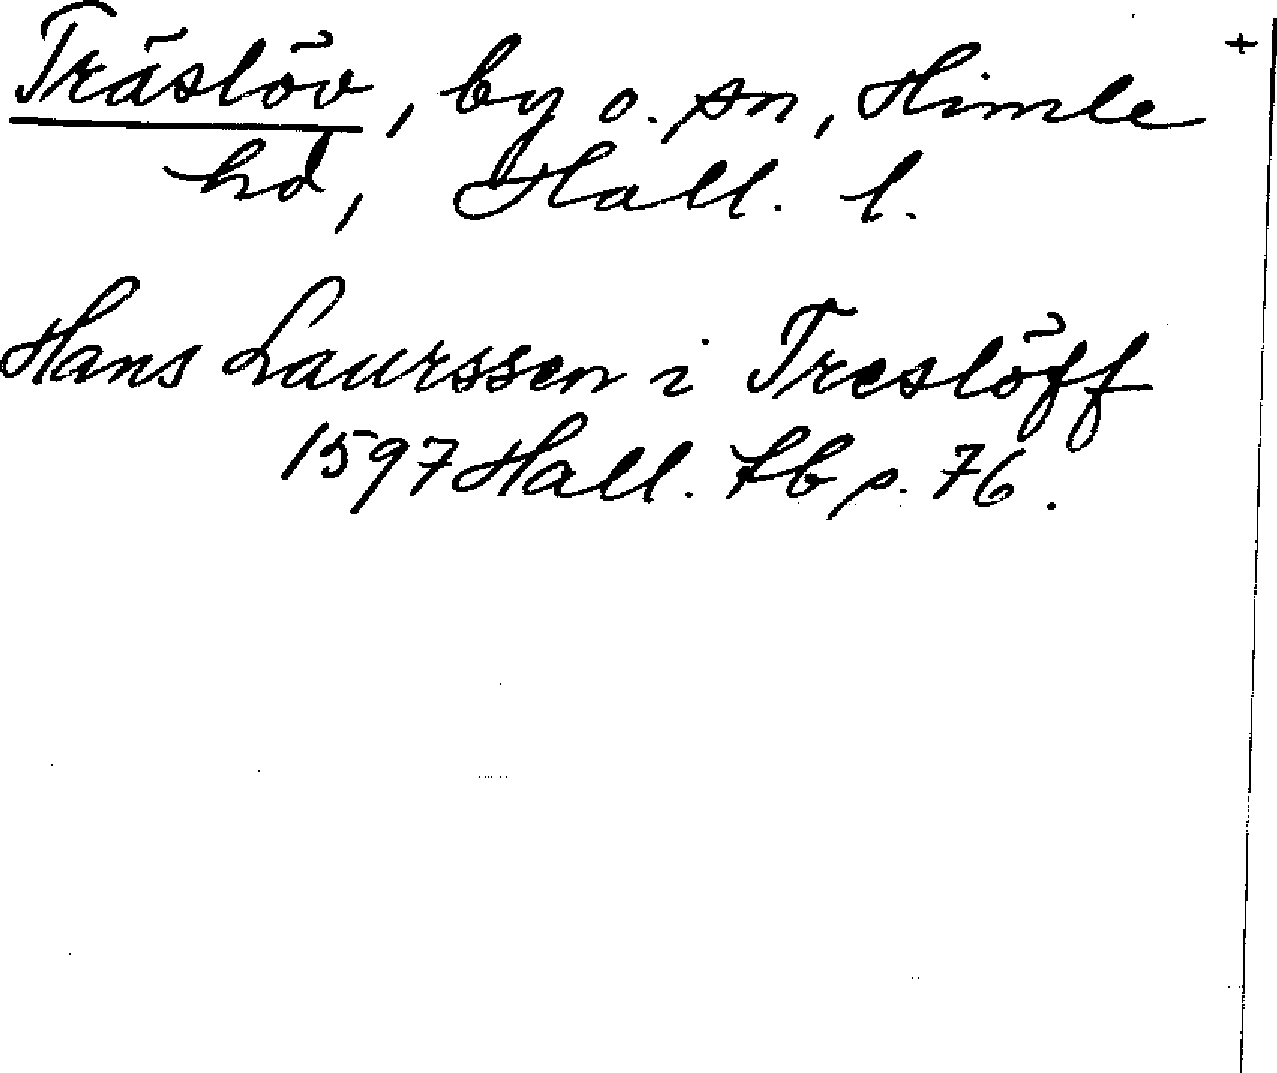 Träslöv, by o. sn, Himle +
hd, Hall. l.
Hans Laurssen i Treslöff
1597 Hall. tb p. 76.